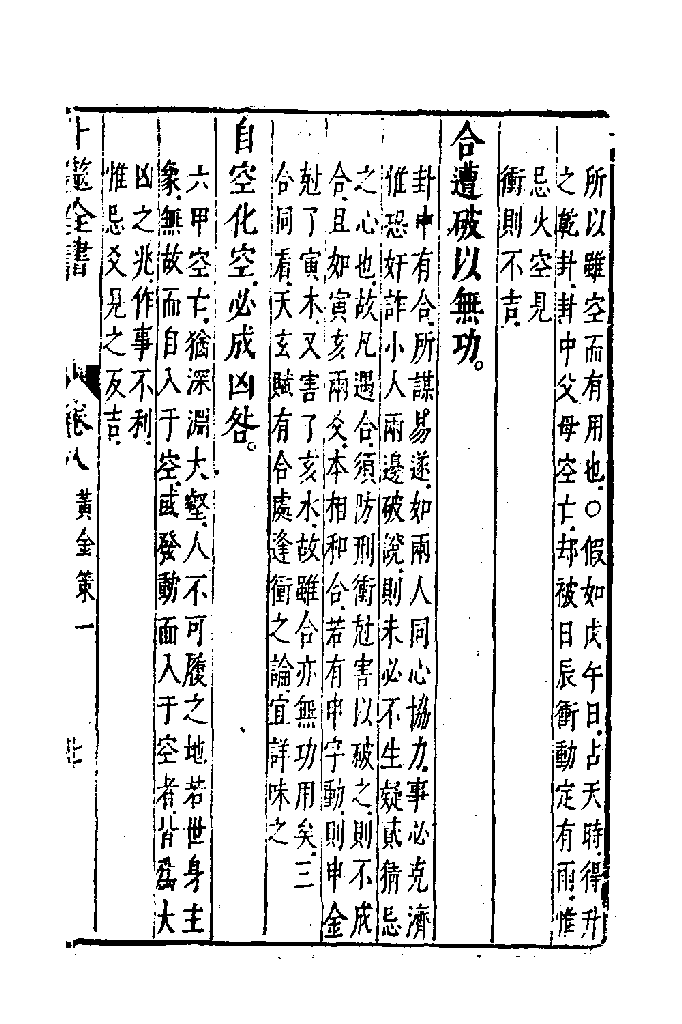 所以雖空而有用也○假如戊午日占天時得升
之乾卦卦中父母空亡却被日辰衝動定有雨惟
忌火空見
衝則不吉
合遭破以無功。
卦中有合所謀易遂如兩人同心協力事必克濟
但恐奸詐小人兩邊破說則未必不生疑貳猜忌
之心也故凡遇合須防刑衝尅害以破之則不成
合且如寅亥兩爻本相和合若有申字動則申金
尅了寅木又害了亥水故雖合亦無功用矣三
合同看天玄賦有合處逢衝之論宜詳味之
自空化空必成凶咎。
六甲空亡猶深淵大壑人不可履之地若世身主
象無故而自入于空或發動而入于空者皆為大
凶之兆作事不利
惟忌爻見之反吉
卜筮全書 卷八 黃金策一